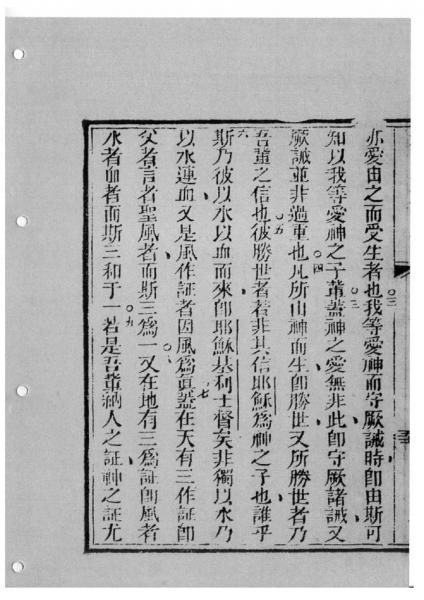 亦愛由之而受生者也我等愛神而守厥誡時即由斯可
知以我等愛神之子輩蓋神之愛無非此即守厥諸誡又
厥誡並非過重也凡所由神而生即勝世又所勝世者乃
吾輩之信也彼勝世者若非其信耶穌為神之子也誰乎
斯乃彼以水以血而來即耶穌基利士督矣非獨以水乃
以水連血又是風作証者因風為眞蓋在天有三作証即
父者言者聖風者而斯三為一又在地有三為証即風者
水者血者而斯三和于一若是吾輩納人之証神之証尤